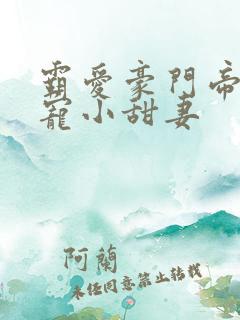 霸愛豪門帝
寵小甜妻
阿蘭
未经同意禁止转载